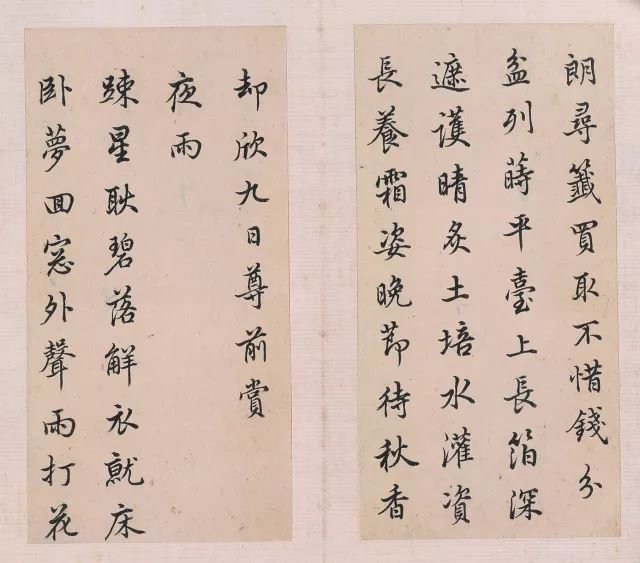 朗尋籤買取不惜錢分
盆列蒔平臺上長箔深
遮護晴炙土培水灌資
長養霜姿晚節待秋香
却欣九日尊前賞
夜雨
踈星耿碧落解衣就床
卧夢回窓外聲雨打花